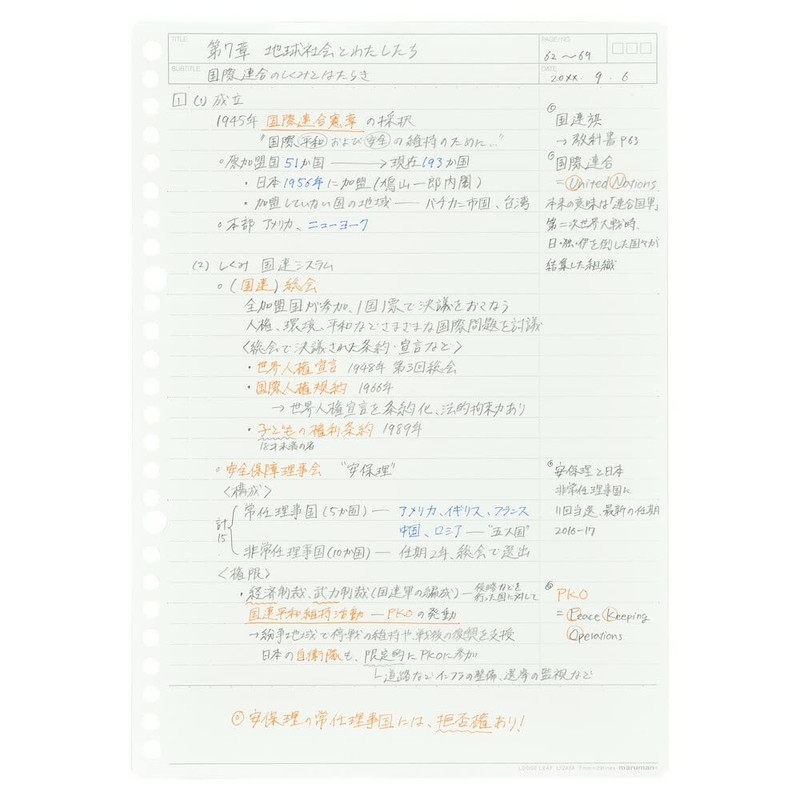 TITLE
第7章 地球社会とわたしたち
PAGE/NO.
62〜69
SUBTITLE
国際連合のしくみとはたらき
DATE
20XX. 9. 6
1 (1) 成立
1945年 国際連合憲章 の採択
"国際平和および安全の維持のために…"
○原加盟国51か国 → 現在193か国
・日本1956年に加盟(鳩山一郎内閣)
・加盟していない国の地域 — バチカン市国、台湾
○本部 アメリカ、ニューヨーク
国連旗
→ 教科書P63
国際連合
= United Nations.
本来の意味は「連合国軍」
第二次世界大戦時、
日・独・伊を倒した国々が
結集した組織
(2) しくみ 国連システム
○(国連)総会
全加盟国が参加、1国1票で決議をおこなう
人権、環境、平和などさまざまな国際問題を討議
〈総会で決議された条約・宣言など〉
・世界人権宣言 1948年 第3回総会
・国際人権規約 1966年
→ 世界人権宣言を条約化、法的拘束力あり
・子どもの権利条約 1989年
18才未満の者
○安全保障理事会 "安保理"
〈構成〉
計15
常任理事国(5か国) — アメリカ、イギリス、フランス
中国、ロシア — "五大国"
非常任理事国(10か国) — 任期2年、総会で選出
安保理と日本
非常任理事国に
11回当選、最新の任期
2016-17
〈権限〉
・経済制裁、武力制裁(国連軍の編成) — 侵略などを
行った国に対して
国連平和維持活動 — PKOの発動
→ 紛争地域で停戦の維持や、戦後の復興を支援
日本の自衛隊も、限定的にPKOに参加
└道路などインフラの整備、選挙の監視など
PKO
= Peace Keeping
Operations
◎安保理の常任理事国には、拒否権あり!
LOOSE LEAF
maruman